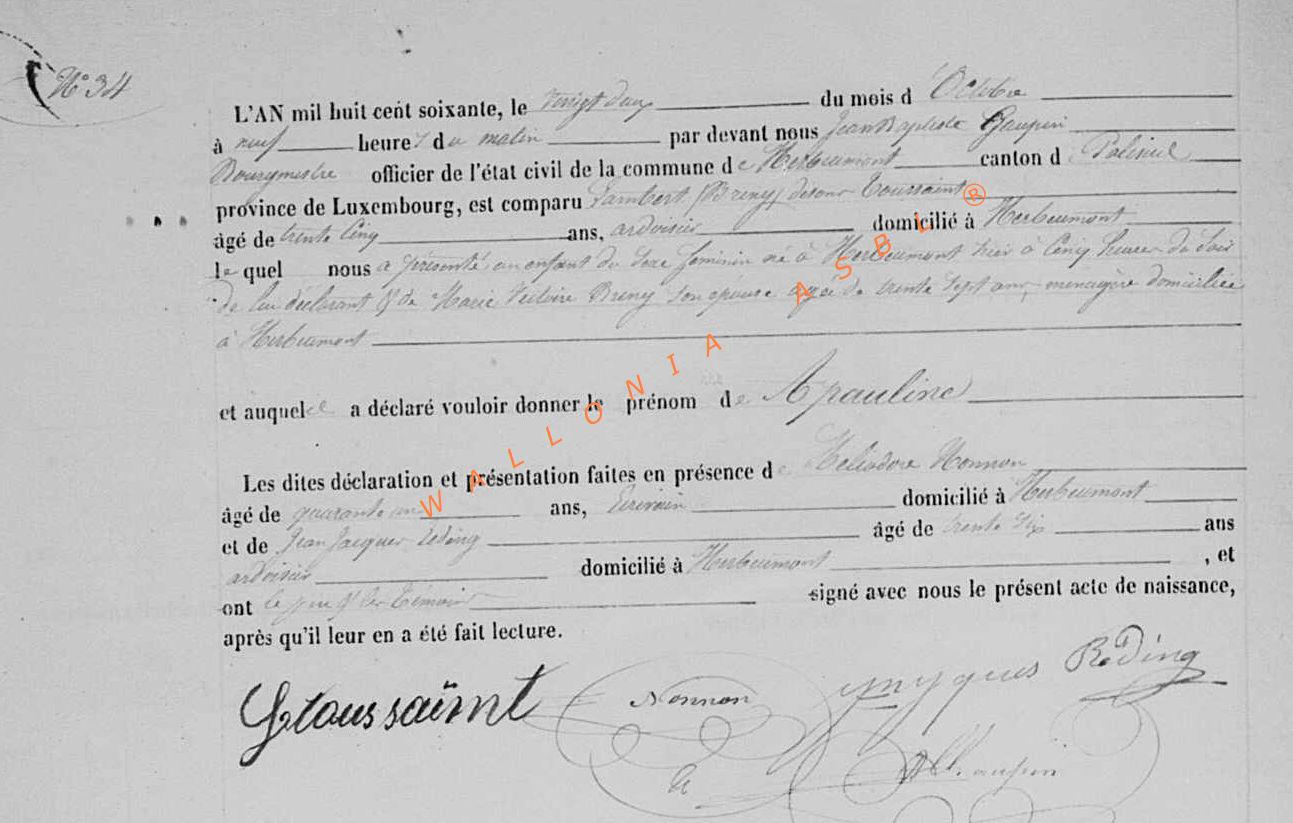 N° 34
L'AN mil huit cent soixante, le vingt deux du mois d'Octobre
à neuf heures du matin par devant nous Jean Baptiste Gaupin
Bourgmestre officier de l'état civil de la commune de Herbeumont canton de Paliseul
province de Luxembourg, est comparu Lambert (Breny) Toussaint
âgé de trente Cinq ans, ardoisier domicilié à Herbeumont
le quel nous a présenté un enfant du sexe feminin né à Herbeumont hier à Cinq heures du soir
de lui déclarant & de Marie Victoire Breny son épouse agée de trente sept ans, ménagère domiciliée
à Herbeumont
et auquel a déclaré vouloir donner le prénom de Apauline
Les dites déclaration et présentation faites en présence de Heliodore Nonnon
âgé de quarante un ans, Ecrivain domicilié à Herbeumont
et de Jean Jacques Reding âgé de trente six ans
ardoisier domicilié à Herbeumont, et
ont le père & les témoins signé avec nous le présent acte de naissance,
après qu'il leur en a été fait lecture.
Toussaint Nonnon Reding
WALLONIA ASBL ®